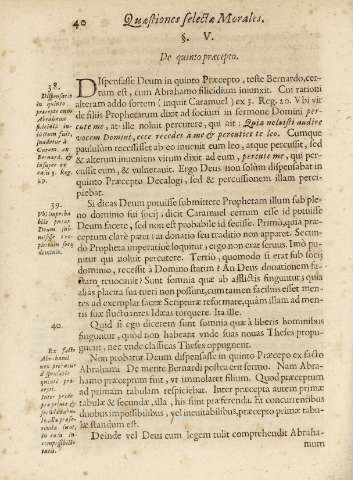 40
Quæstiones selectæ Morales.
§. V.
De quinto præcepto.
38.
DIspensasse Deum in quinto Præcepto, teste Bernardo, cer-
tum est, cum Abrahamo filicidium iniunxit. Cui rationi
alteram addo sortem (inquit Caramuel) ex 3. Reg. 20. Vbi vir
de filijs Prophetarum dixit ad socium in sermone Domini per-
cute me, at ille noluit percutere, qui ait: Quia noluisti audire
vocem Domini, ecce recedes à me & percutiet te leo. Cumque
paululùm recessisset ab eo inuenit eum leo, atque percussit, sed
& alterum inueniens virum dixit ad eum, percute me, qui per-
cussit eum, & vulnerauit. Ergo Deus non solùm dispensabat in
quinto Præcepto Decalogi, sed & percussionem illam perci-
piebat.
39.
Si dicas Deum potuisse submittere Prophetam illum sub ple-
no dominio sui socij; dicit Caramuel certum esse id potuisse
Deum facere, sed non est probabile id fecisse. Primò, quia præ-
ceptum clarè patet; at donatio seu traditio non apparet. Secun-
dò Propheta imperatiuè loquitur, ergo non erat seruus. Imò pu-
nitur qui noluit percutere. Tertiò, quomodo si erat sub socij
dominio, recessit à Domino statim? An Deus donationem fa-
ctam reuocauit? Sunt somnia quæ ab afflictis finguntur; quia
alias placita sua tueri non possunt, cum tamen facilius esset men-
tes ad exemplar sacræ Scripturæ reformare, quàm illam ad men-
tis suæ fluctuantes Ideas torquere. Ita ille.
40.
Quid si ego dicerem sunt somnia quæ à liberis hominibus
finguntur, quòd non habeant vnde suas nouas Theses propu-
gnent, nec vnde classicas Theses oppugnent.
Non probatur Deum dispensasse in quinto Præcepo ex facto
Abrahami. De mente Bernardi postea erit sermo. Nam Abra-
hamo præceptum fuit, vt immolaret filium. Quod præceptum
ad primam tabulam respiciebat. Inter præcepta autem primæ
tabulæ & secundæ, illa, his sunt præferenda. Et concurrentibus
duobus impossibilibus, vel ineuitabilibus, præcepto primæ tabu-
læ standum est.
Deinde vel Deus cum legem tulit comprehendit Abraha-
mum